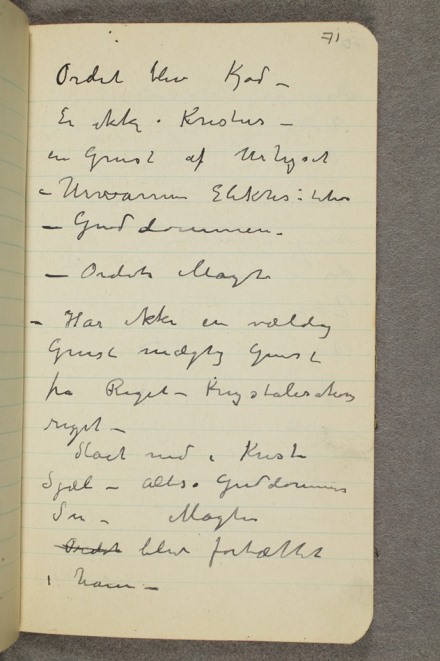 71
Ordet blev Kjød –
Er ikke i Kristus –
en Gnist af Urlyset
– Urvarmen Elektriciteten
– Guddommen.
– Ordets Magt
– Har ikke en vældig
Gnist mægtig Gnist
fra Riget – Krystalisations
riget –
Slaaet ned i Kristi
Sjæl – altsa Guddommens
Søn – Magten
Ordet blev fortættet
i ham –